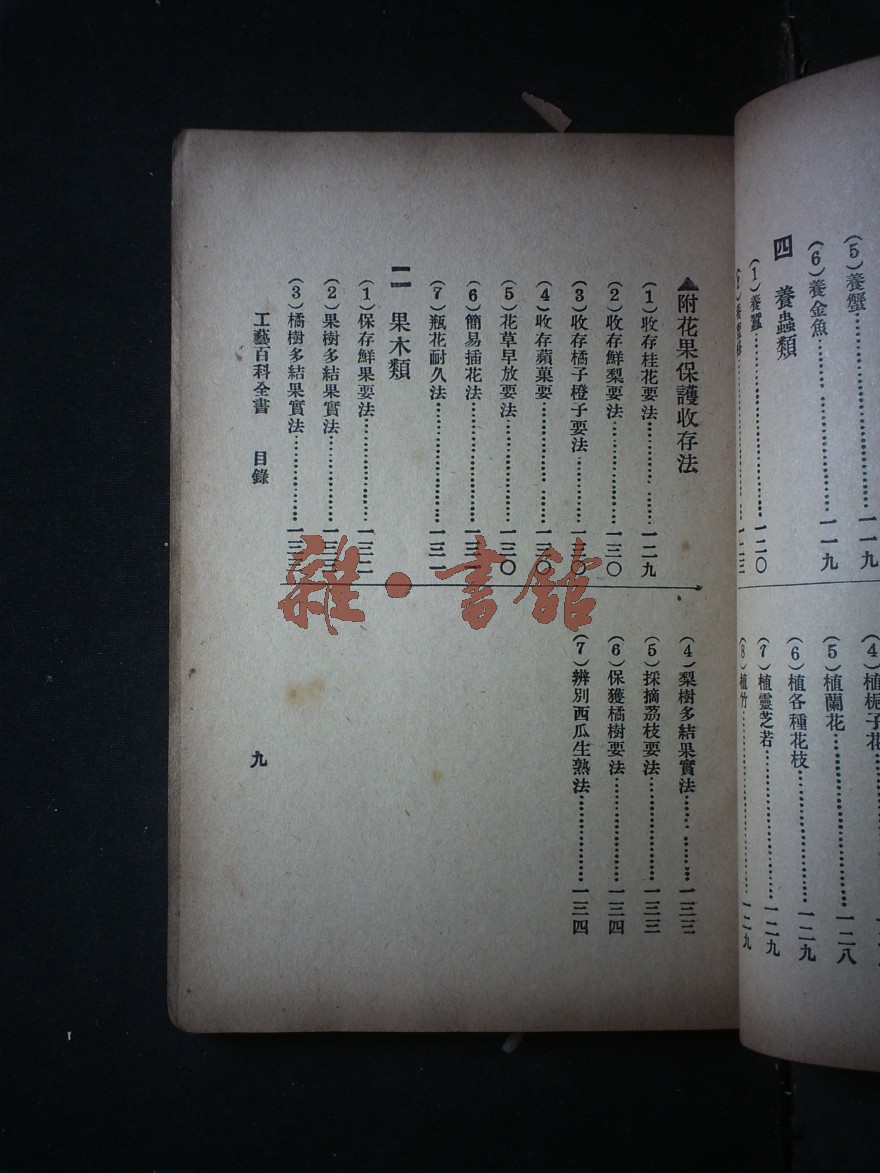 (5)養蟹………一一九
(6)養金魚………一一九
四 養蟲類
(1)養蠶………一二〇
(4)植梔子花
(5)植蘭花………一二八
(6)植各種花枝………一二九
(7)植靈芝若………一二九
(8)植竹………一二九
▲附花果保護收存法
(1)收存桂花要法………一二九
(2)收存鮮梨要法………一三〇
(3)收存橘子橙子要法………一三〇
(4)收存蘋菓要………一三〇
(5)花草早放要法………一三〇
(6)簡易插花法………一三一
(7)瓶花耐久法………一三一
二 果木類
(1)保存鮮果要法………一三二
(2)果樹多結果實法………一三三
(3)橘樹多結果實法………一三三
(4)梨樹多結果實法………一三三
(5)採摘荔枝要法………一三三
(6)保獲橘樹要法………一三四
(7)辨別西瓜生熟法………一三四
工藝百科全書 目錄
九
雜·書館